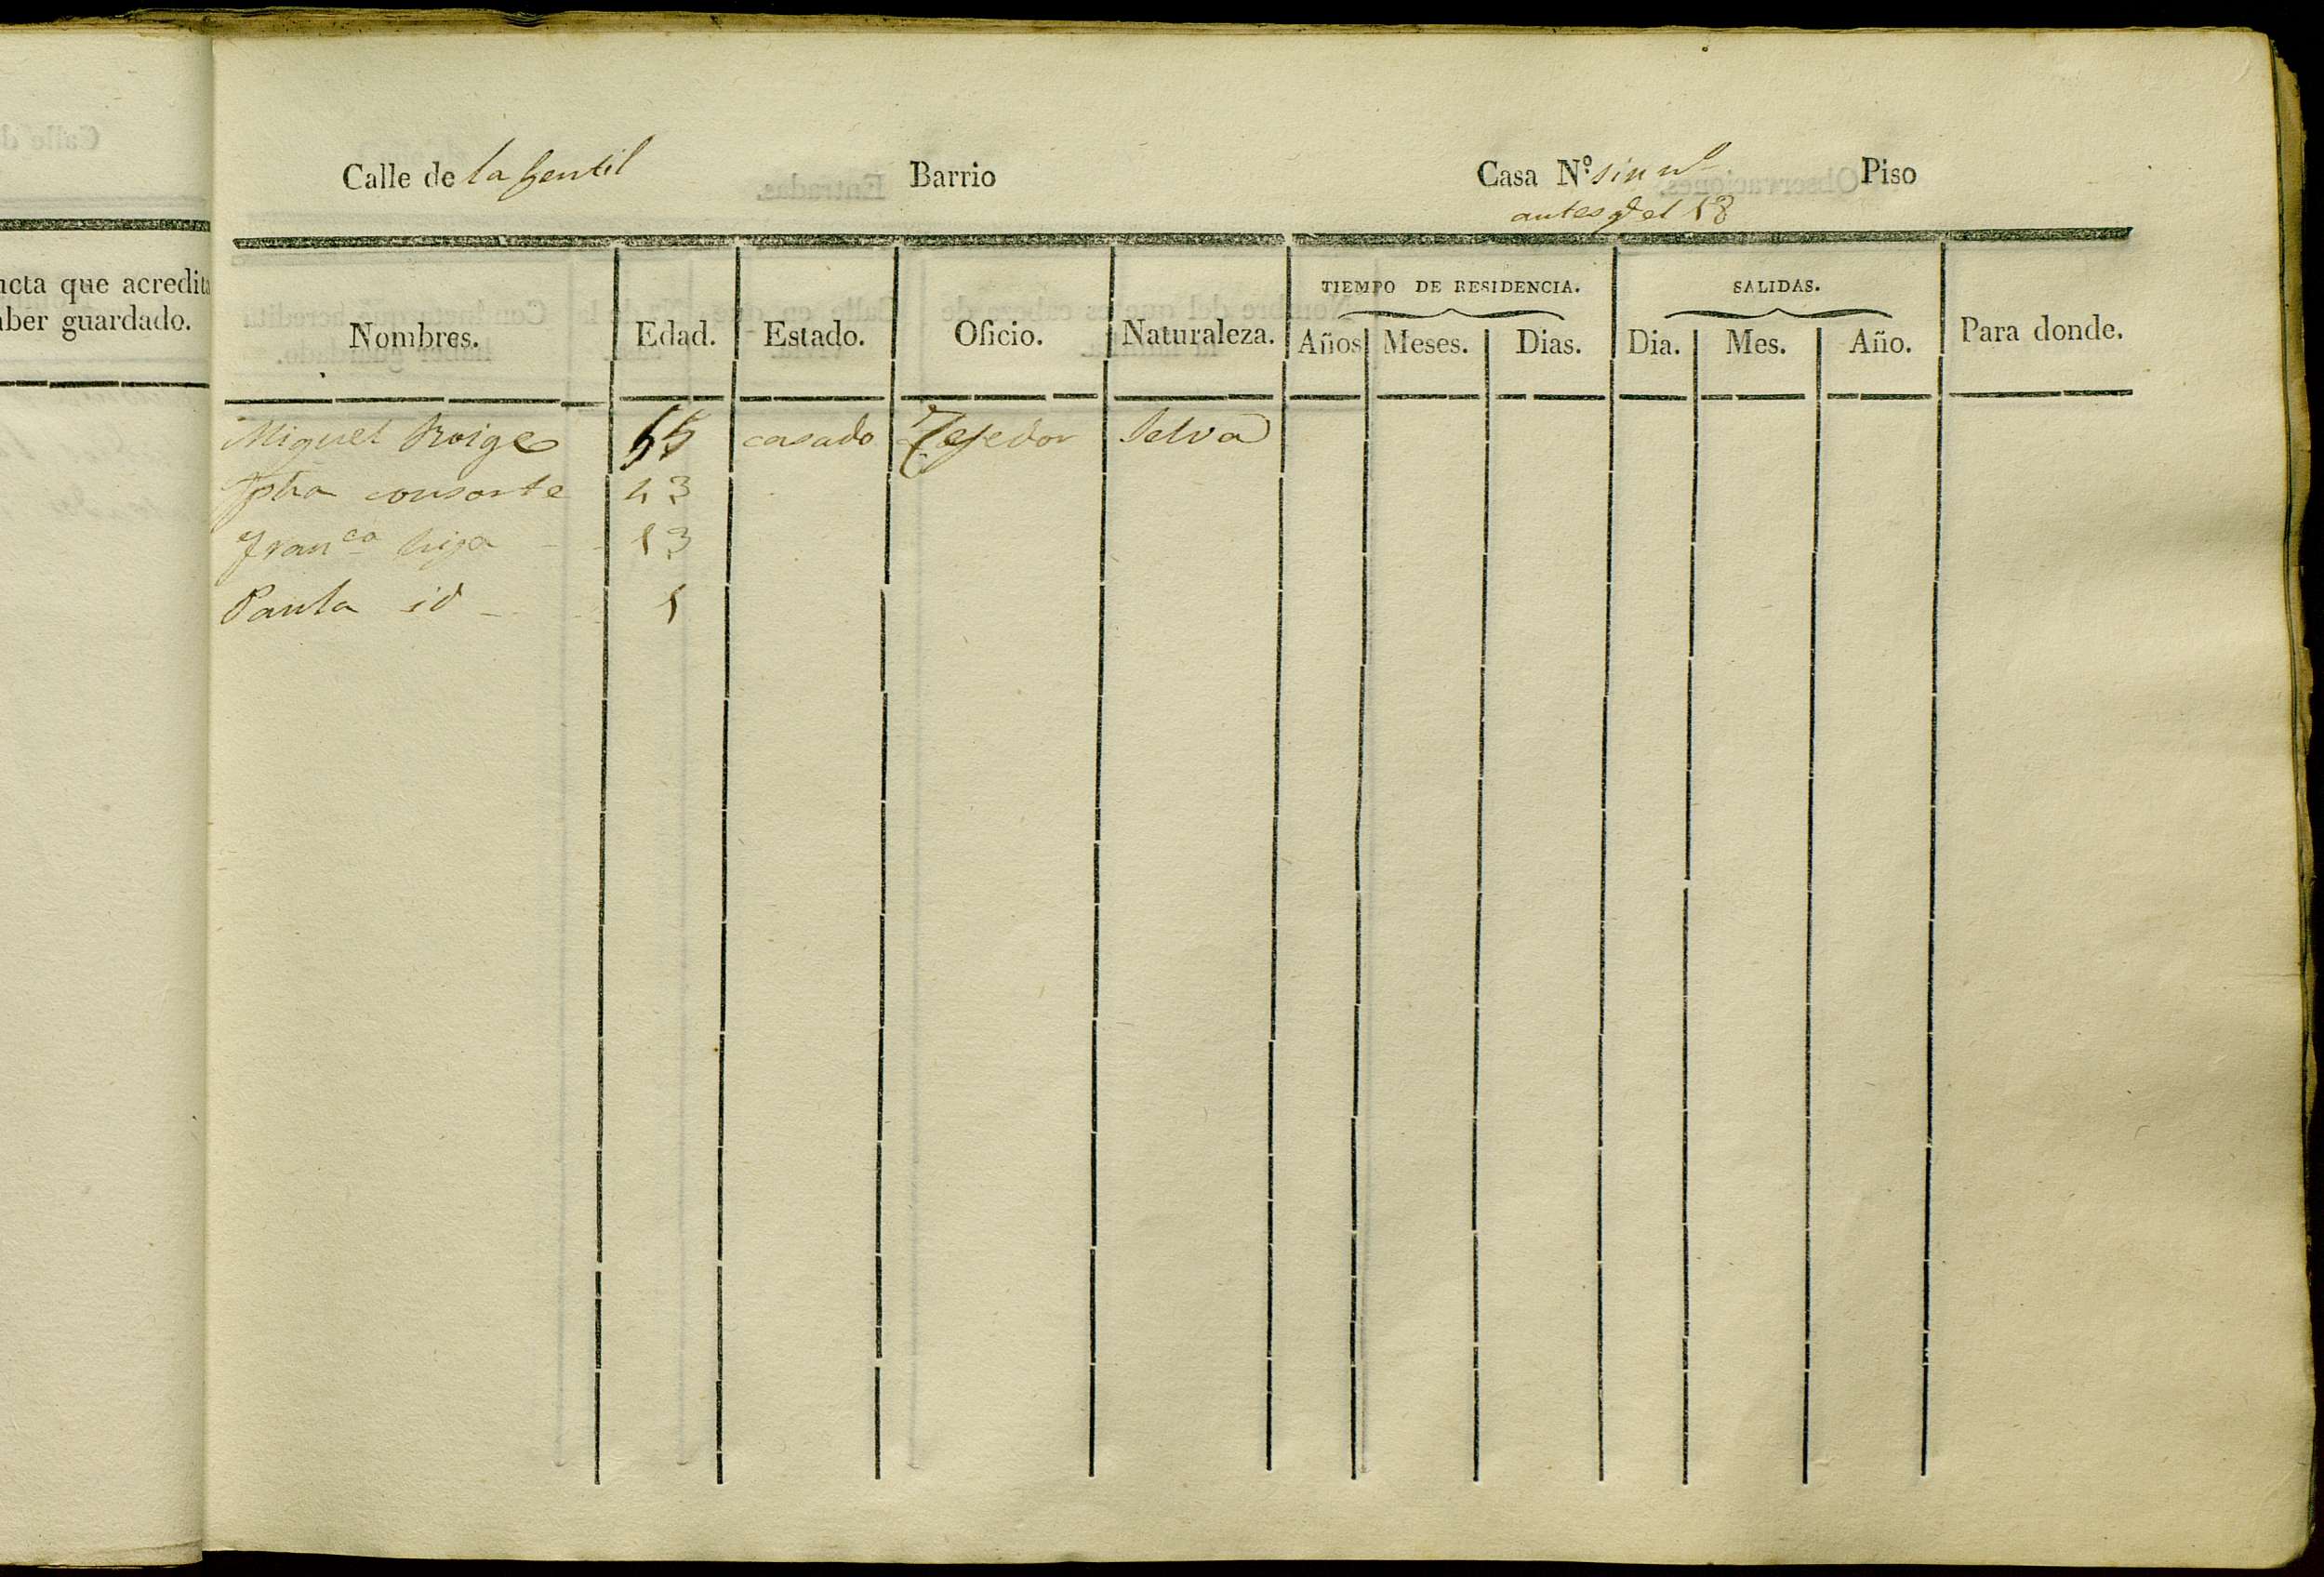 Calle de la Gentil Barrio Casa N.º sin nº Piso
antes qe el 18
ncta que acredita
aber guardado.
TIEMPO DE RESIDENCIA. SALIDAS.
Nombres. Edad. Estado. Oficio. Naturaleza. Años Meses. Dias. Dia. Mes. Año. Para donde.
Miguel Roige 55 casado Tejedor Selva
consorte 43
Franca hija - - 13
Paula id - 1